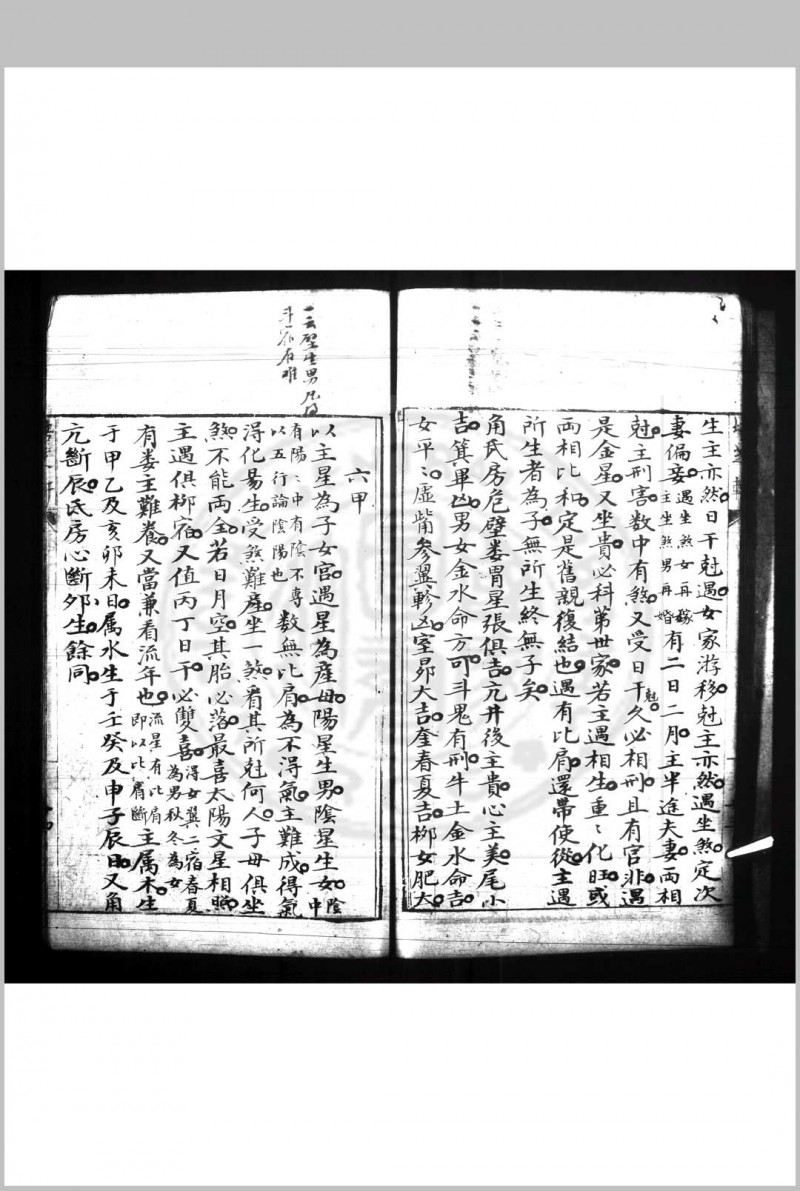 生主亦然日干尅遇女家游移尅主亦然遇坐煞定次
妻偏妾遇坐煞女再嫁主坐煞男再婚有二日二月主半途夫妻兩相
尅主刑害数中有煞又受日干尅久必相刑且有官非遇
是金星又坐貴必科第世家若主遇相生重〻化旺或
兩相比和定是舊親復結也遇有比肩還帶使從主遇
所生者為子無所生終無子矣
角氐房危壁娄胃星張俱吉亢井後主貴心主美尾小
吉箕畢凶男女金水命方可斗鬼有刑牛土金水命吉
女平〻虛觜參翼軫凶室昴大吉奎春夏吉柳女肥大
一云壁生男
斗 有难
六甲
以主星為子女宮遇星為産母陽星生男陰星生女陰中
有陽〻中有陰不專以五行論陰陽也数無比肩為不得氣主難成得氣
得化易生受煞難產坐一煞看其所尅何人子母俱坐
煞不能兩全若日月空其胎必落最喜太陽文星相照
主遇俱柳宿又值丙丁日干必雙喜得女翼二宿春夏為男秋冬為女
有娄主難養又當兼看流年也流星有比肩即以比肩斷主属木生
于甲乙及亥卯未日属水生于壬癸及申子辰日又角
亢斷辰氐房心斷卯生餘同